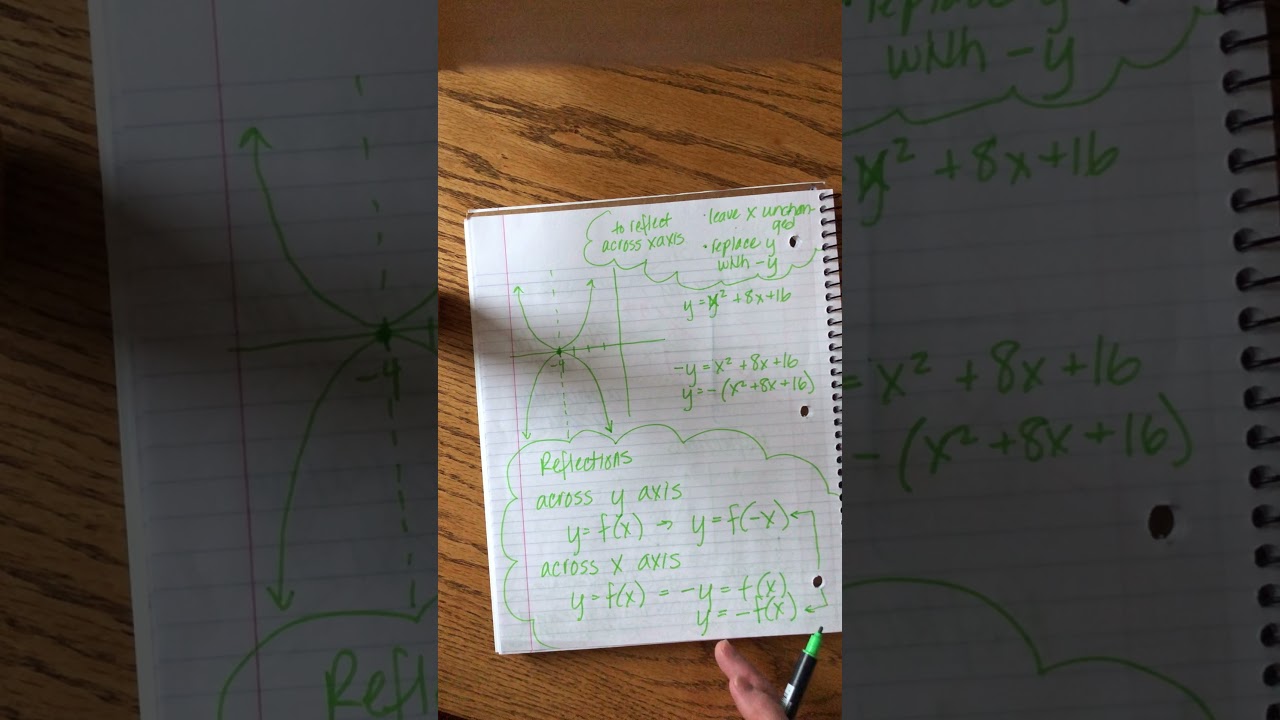 to reflect
across x axis
· leave x unchan-
ged
· replace y
with -y
y = x² + 8x + 16
-4
-y = x² + 8x + 16
y = -(x² + 8x + 16)
Reflections
across y axis
y = f(x) → y = f(-x)
across x axis
y = f(x) = -y = f(x)
y = -f(x)